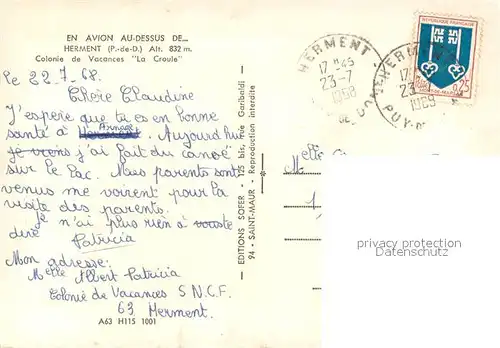 EN AVION AU-DESSUS DE...
HERMENT (P.-de-D.) Alt. 832 m.
Colonie de Vacances "La Croule"
le 22.7.68.
Chère Claudine
J'espère que tu es en bonne
santé à Herment Arnage. Aujourd'hui
je viens j'ai fait du canoë
sur le lac. Mes parents sont
venus me voirent pour la
visite des parents.
Je n'ai plus rien à
dire
Patricia
Mon adresse:
Melle Albert Patricia
Colonie de Vacances S.N.C.F.
63 Herment.
A63 H115 1001
EDITIONS SOFER - 125 bis, rue Garibaldi
94 - SAINT-MAUR - Reproduction interdite
HERMENT
17 H45
23-7
PUY-DE-DOME
HERMENT
17
23
PUY-DE
REPUBLIQUE FRANÇAISE
0,25
Melle
privacy protection
Datenschutz